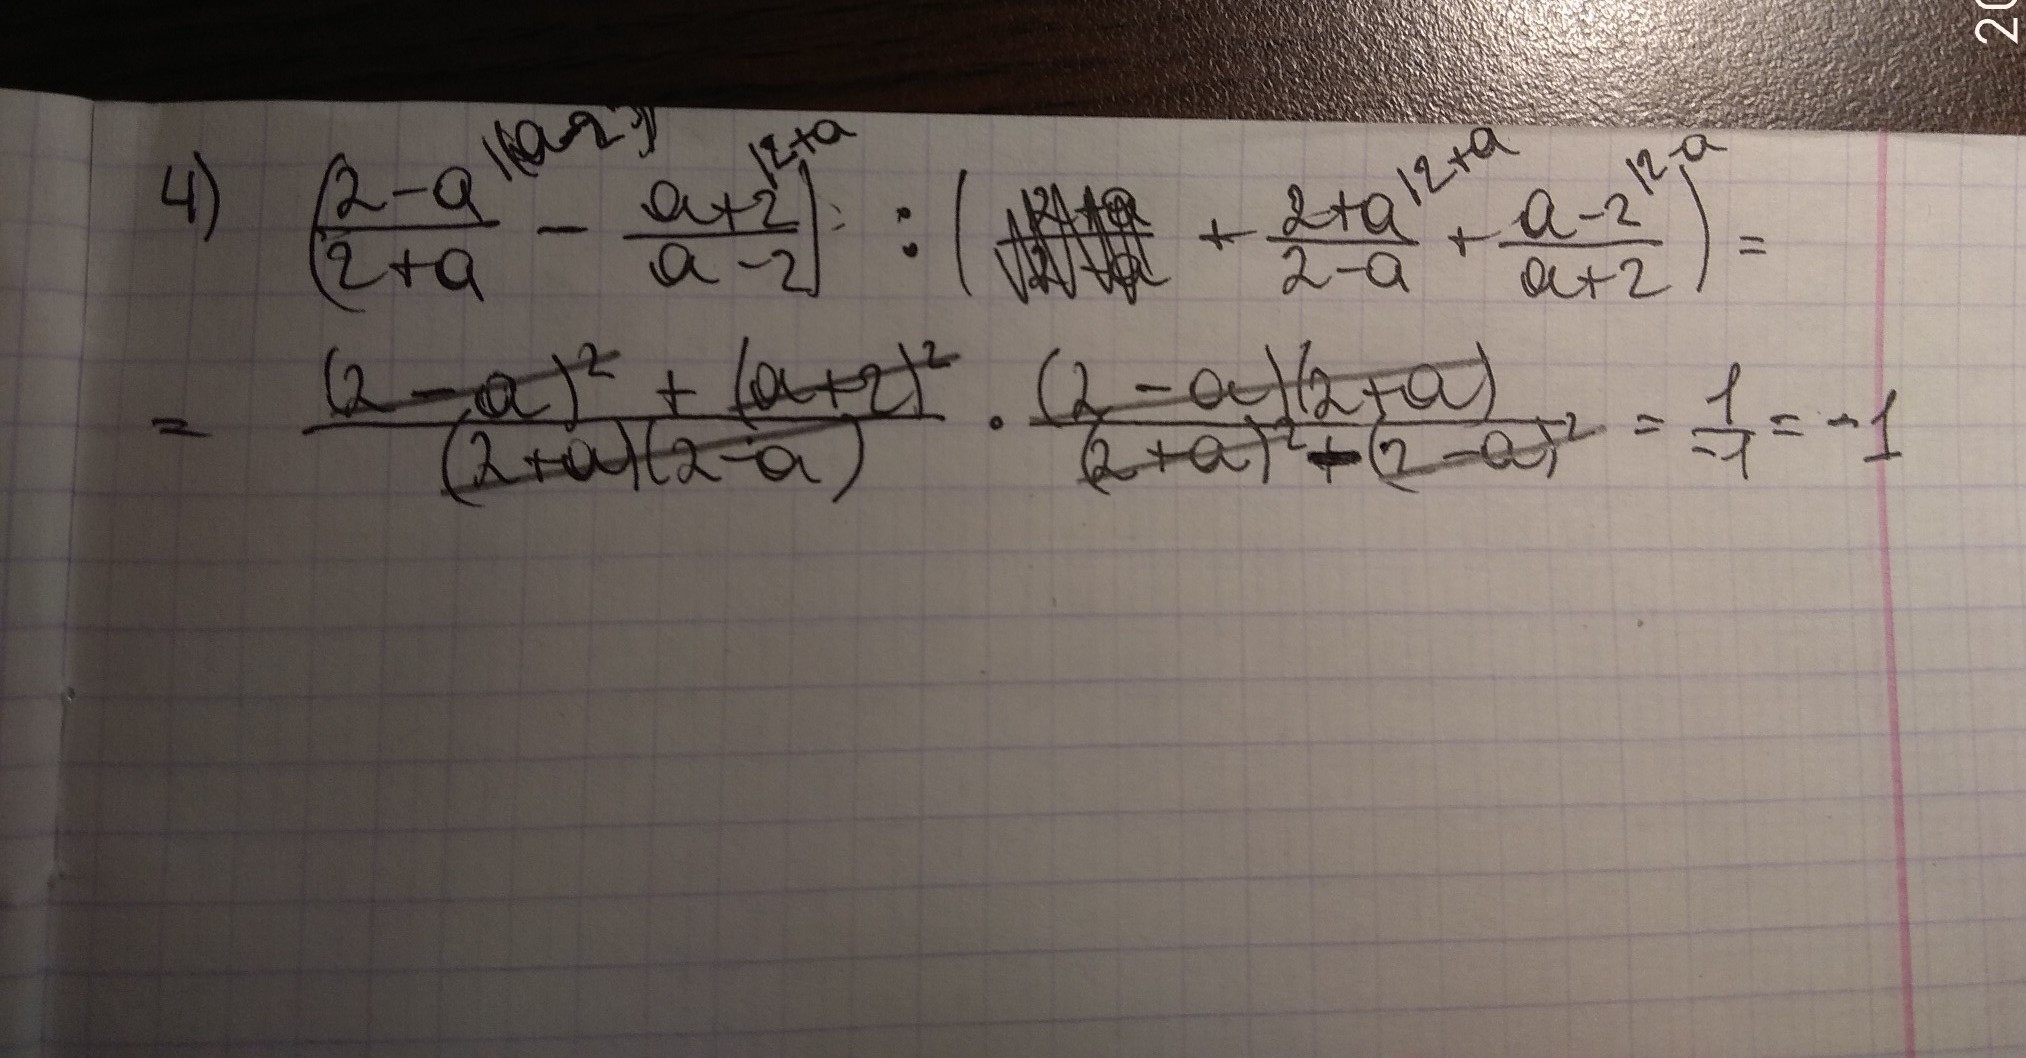 20
4) ((2-a)/(2+a) |(a-2) - (a+2)/(a-2) |2+a) : ( + (2+a)/(2-a) |2+a + (a-2)/(a+2) |2-a) =
= ((2-a)² + (a+2)²)/((2+a)(2-a)) · ((2-a)(2+a))/((2+a)² - (2-a)²) = 1/-1 = -1